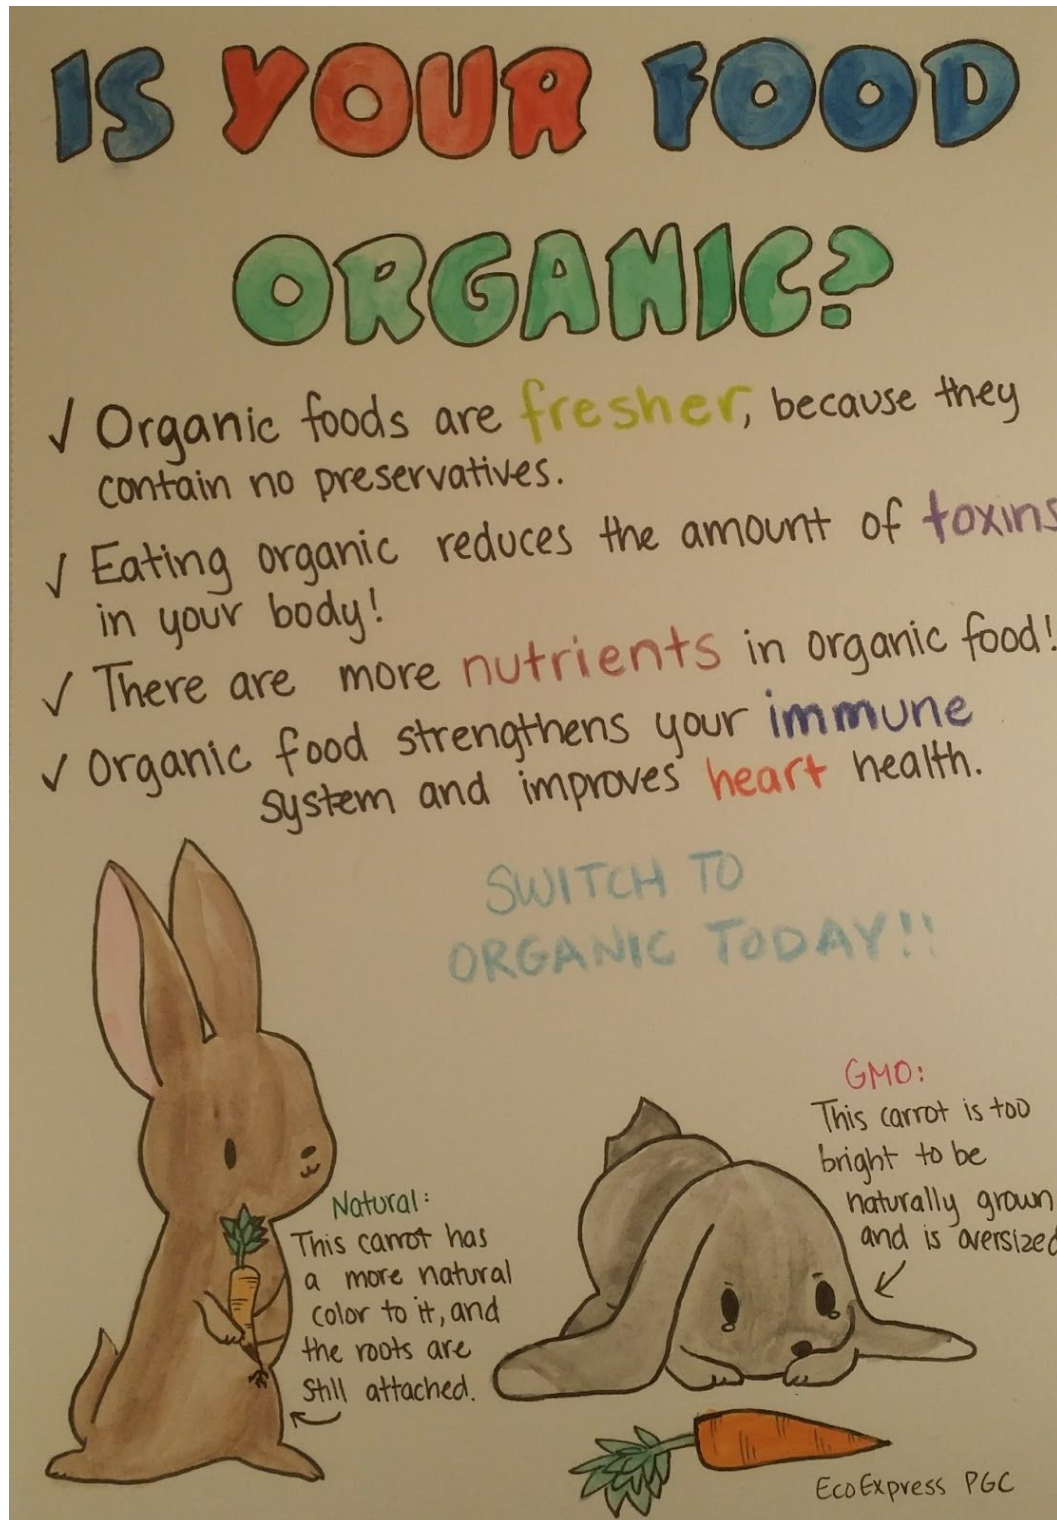 IS YOUR FOOD
ORGANIC?
✓ Organic foods are fresher, because they
contain no preservatives.
✓ Eating organic reduces the amount of toxins
in your body!
✓ There are more nutrients in organic food!
✓ Organic food strengthens your immune
system and improves heart health.
SWITCH TO
ORGANIC TODAY!!
Natural:
This carrot has
a more natural
color to it, and
the roots are
still attached.
GMO:
This carrot is too
bright to be
naturally grown
and is oversized
EcoExpress PGC